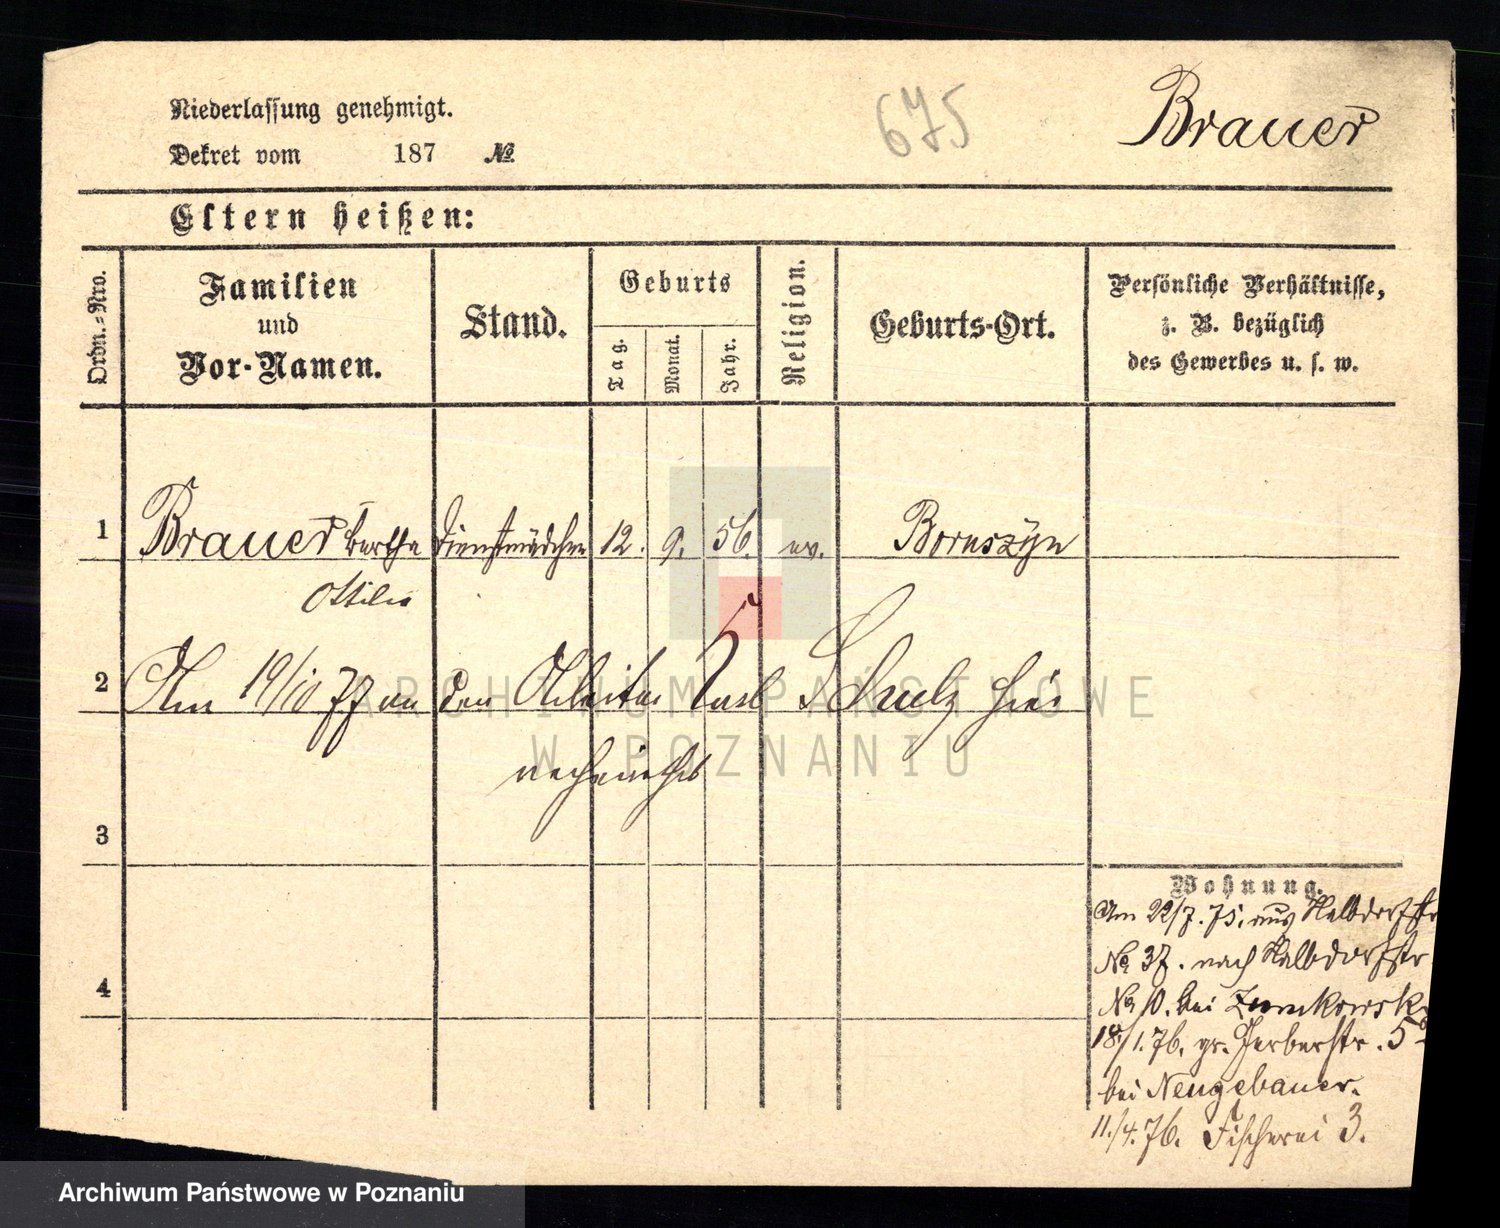 Niederlassung genehmigt.
Dekret vom 187 №
675
Brauer
Eltern heißen:
Ordn.-Nro.
Familien
und
Vor-Namen.
Stand.
Geburts
Tag.
Monat.
Jahr.
Religion.
Geburts-Ort.
Persönliche Verhältnisse,
z. B. bezüglich
des Gewerbes u. s. w.
1 Brauer Bertha Dienstmädchen 12. 9. 56. ev. Boruszyn
Ottilie
2 Am 19/10 77 an den Arbeiter Carl Schulz hier
verheirathet
3
4
Wohnung.
Am 22/7. 75. aus Halbdorfstr
No 37. nach Halbdorfstr
No 10. bei
18/1. 76. gr. Gerberstr. 5
bei Neugebauer.
11./4. 76. Fischerei 3.
ARCHIWUM PAŃSTWOWE
W POZNANIU
Archiwum Państwowe w Poznaniu